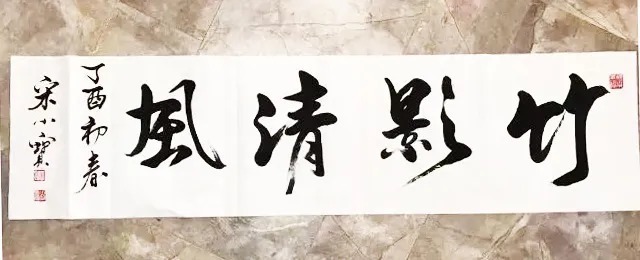 竹影清風
丁酉初春
宋小寶